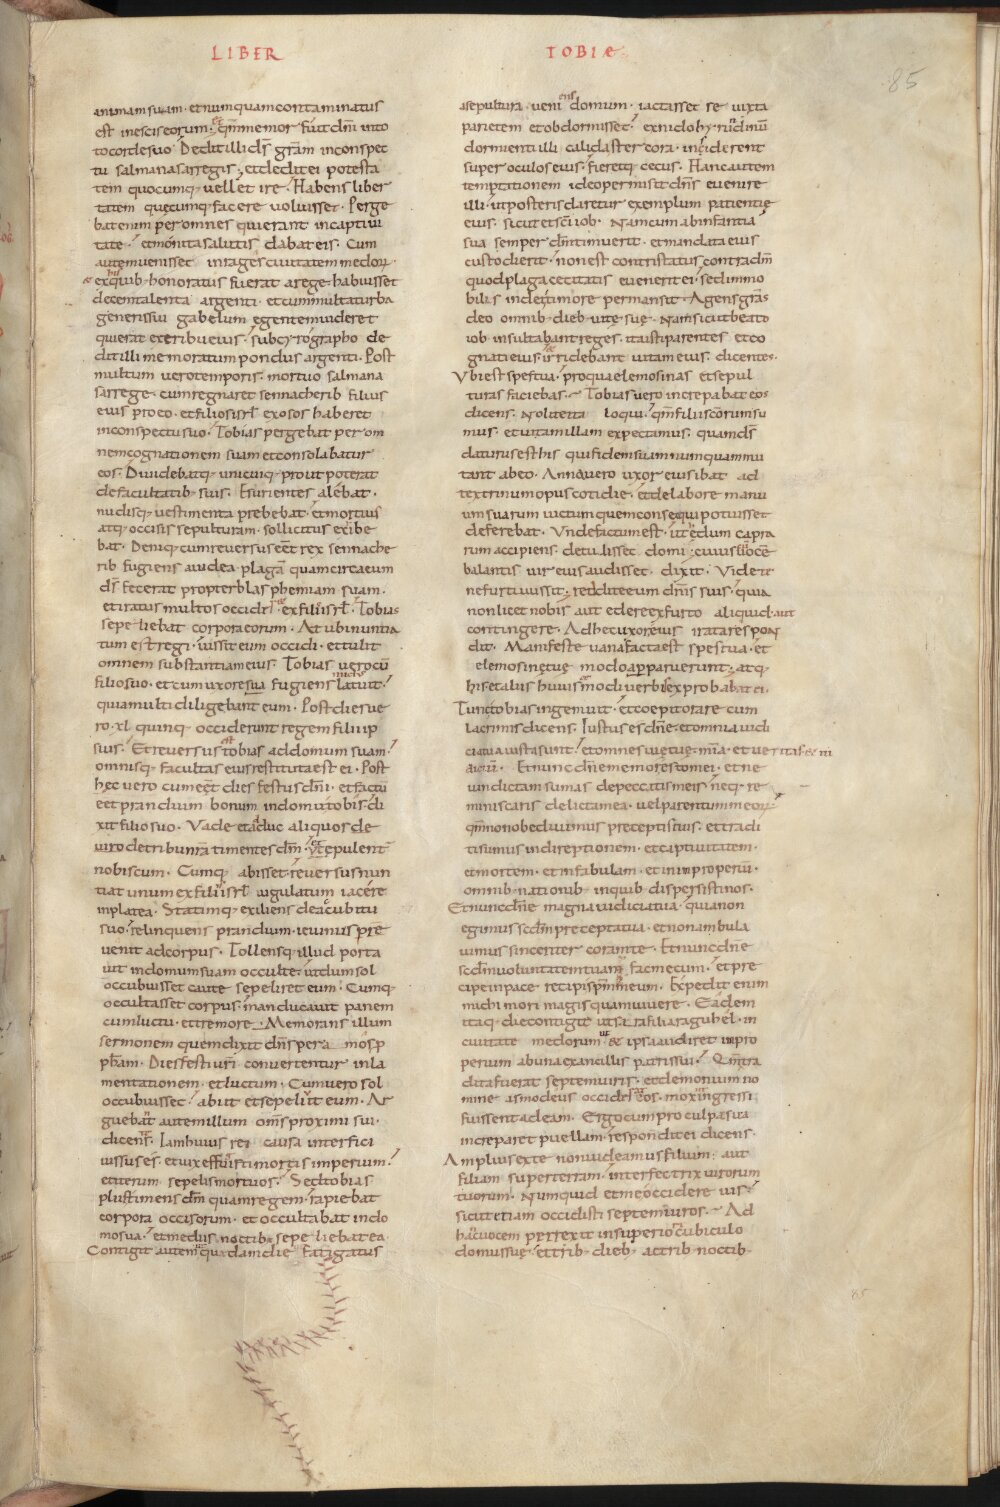 LIBER TOBIÆ
85
animam suam · et numquam contaminatus
est in escis eorum · et qm̄ memor fuit dn̄i in to
to corde suo · Dedit illi ds̄ gr̄am in conspec
tu salmanasar regis · et dedit ei potesta
tem quocumq· vellet ire · Habens liber
tatem quęcumq· facere voluisset · Perge
bat enim per omnes qui erant in captivi
tate · et monita salutis dabat eis · Cum
autem venisset in rages civitatem medor̄
ex quib· honoratus fuerat a rege habuisset
decem talenta argenti · et cum in multa turba
generis sui gabelum egentem videret
qui erat ex tribu eius · sub cyrographo de
dit illi memoratum pondus argenti · Post
multum vero temporis · mortuo salmana
sar rege · cum regnaret sennacherib filius
eius pro eo · et filios isrl̄ exosos haberet
in conspectu suo · Tobias pergebat per om
nem cognationem suam et consolabatur
eos · Dividebatq· unicuiq· prout poterat
de facultatib· suis · Esurientes alebat ·
nudisq· vestimenta prebebat · et mortuis
atq· occisis sepulturam · sollicitus exibe
bat · Deniq· cum reversus eēt rex sennache
rib fugiens a iudea · plagā quam circa eum
ds̄ fecerat propter blasphemiam suam ·
et iratus multos occideret ex filiis isrl̄ · Tobias
sepeliebat corpora eorum · At ubi nuntia
tum est regi · iussit eum occidi · et tulit
omnem substantiam eius · Tobias vero cū
filio suo · et cum uxore sua fugiens nudus latuit ·
quia multi diligebant eum · Post dies ve
ro · xl · quinq· occiderunt regem filii ip
sius · Et reversus est tobias ad domum suam ·
omnisq· facultas eius restituta est ei · Post
hęc vero cum eēt dies festus dn̄i · et factū
eēt prandium bonum in domu tobis di
xit filio suo · Vade et adduc aliquos de
viro de tribu nr̄a timentes dm̄ · et ut epulent̄
nobiscum · Cumq· abisset · reversus nun
tiat unum ex filiis isrl̄ iugulatum iacere
in platea · Statimq· exiliens de accubitu
suo · relinquens prandium · ieiunus per
venit ad corpus · Tollensq· illud porta
vit in domum suam occulte · ut dum sol
occubuisset caute sepeliret eum · Cumq·
occultasset corpus · manducavit panem
cum luctu · et tremore · Memorans illum
sermonem quem dixit dn̄s per amos p
ph̄am · Dies festi vr̄i convertentur in la
mentationem · et luctum · Cum vero sol
occubuisset · abiit et sepelivit eum · Ar
guebant autem illum om̄s proximi sui ·
dicentes · Iam huius rei causa interfici
iussus es · et vix effugisti mortis imperium ·
et iterum sepelis mortuos · Sed tobias
plus timens dm̄ quam regem · rapiebat
corpora occisorum · et occultabat in do
mo sua · et mediis noctib· sepeliebat ea
Contigit autem quadam die fatigatus
a sepultura · veniens domum · iactasset se iuxta
parietem et obdormisset · ex nido hyrundinū
dormienti illi calida stercora · inciderent
super oculos eius · fieretq· cecus · Hanc autem
temptationem ideo permisit dn̄s evenire
illi · ut posteris daretur exemplum patientię
eius · sicut et sc̄i iob · Nam cum ab infantia
sua semper dm̄ timuerit · et mandata eius
custodierit · non est contristatus contra dm̄
quod plaga cecitatis evenerit ei · sed immo
bilis in dei timore permansit · Agens gr̄as
deo omnib· dieb· vitę suę · Nam sicut beato
iob insultabant reges · ita isti parentes et co
gnati eius · irridebant vitam eius · dicentes ·
Ubi est spes tua · pro qua elemosinas et sepul
turas faciebas · Tobias vero increpabat eos
dicens · Nolite ita loqui · qm̄ filii sc̄orum su
mus · et vitam illam expectamus · quam ds̄
daturus est his qui fidem suam numquam mu
tant ab eo · Anna vero uxor eius ibat ad
textrinum opus cotidie · et de labore manu
um suarum victum quem consequi potuisset
deferebat · Unde factum est · ut ędum capra
rum accipiens · detulisset domi · cuius cū vocē
balantis vir eius audisset · dixit · Videte
ne furtivus sit · reddite eum dn̄is suis · quia
non licet nobis aut edere ex furto aliquid · aut
contingere · Ad hec uxor eius irata respon
dit · Manifeste vana facta est spes tua · et
elemosinę tuę modo apparuerunt · atq·
his et aliis huiuscemodi verbis exprobabat ei ·
Tunc tobias ingemuit · et coepit orare cum
lacrimis dicens · Iustus es dn̄e · et omnia iudi
cia tua iusta sunt · et omnes vię tuę · mīa · et veritas · & iu
diciū · Et nunc dn̄e memor esto mei · et ne
vindictam sumas de peccatis meis · neq· re
miniscaris delicta mea · vel parentum meor̄
qm̄ non obedivimus preceptis tuis · et tradi
ti sumus in direptionem · et captivitatem ·
et mortem · et in fabulam · et in improperiū ·
omnib· nationib· in quib· dispersisti nos ·
Et nunc dn̄e magna iudicia tua · quia non
egimus scd̄m precepta tua · et non ambula
vimus sinceriter coram te · Et nunc dn̄e
scd̄m voluntatem tuam fac mecum · et pre
cipe in pace recipi sp̄m meum · Expedit enim
michi mori magis quam vivere · Eadem
itaq· die contigit ut sarra filia raguhel · in
civitate medorum · ut & ipsa audiret impro
perium ab una ex ancillis patris sui · Qm̄ tra
dita fuerat septem viris · et demonium no
mine asmodeus occideret eos · mox ut ingressi
fuissent ad eam · Ergo cum pro culpa sua
increparet puellam · respondit ei dicens ·
Amplius ex te non videamus filium · aut
filiam super terram · interfectrix virorum
tuorum · Numquid et me occidere vis ·
sicut etiam occidisti septem viros · Ad
hanc vocem perrexit in superiori cubiculo
domus suę · et trib· dieb· ac trib· noctib·
85